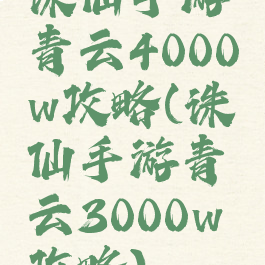 诛仙手游
青云4000
w攻略(诛
仙手游青
云3000w
攻略)